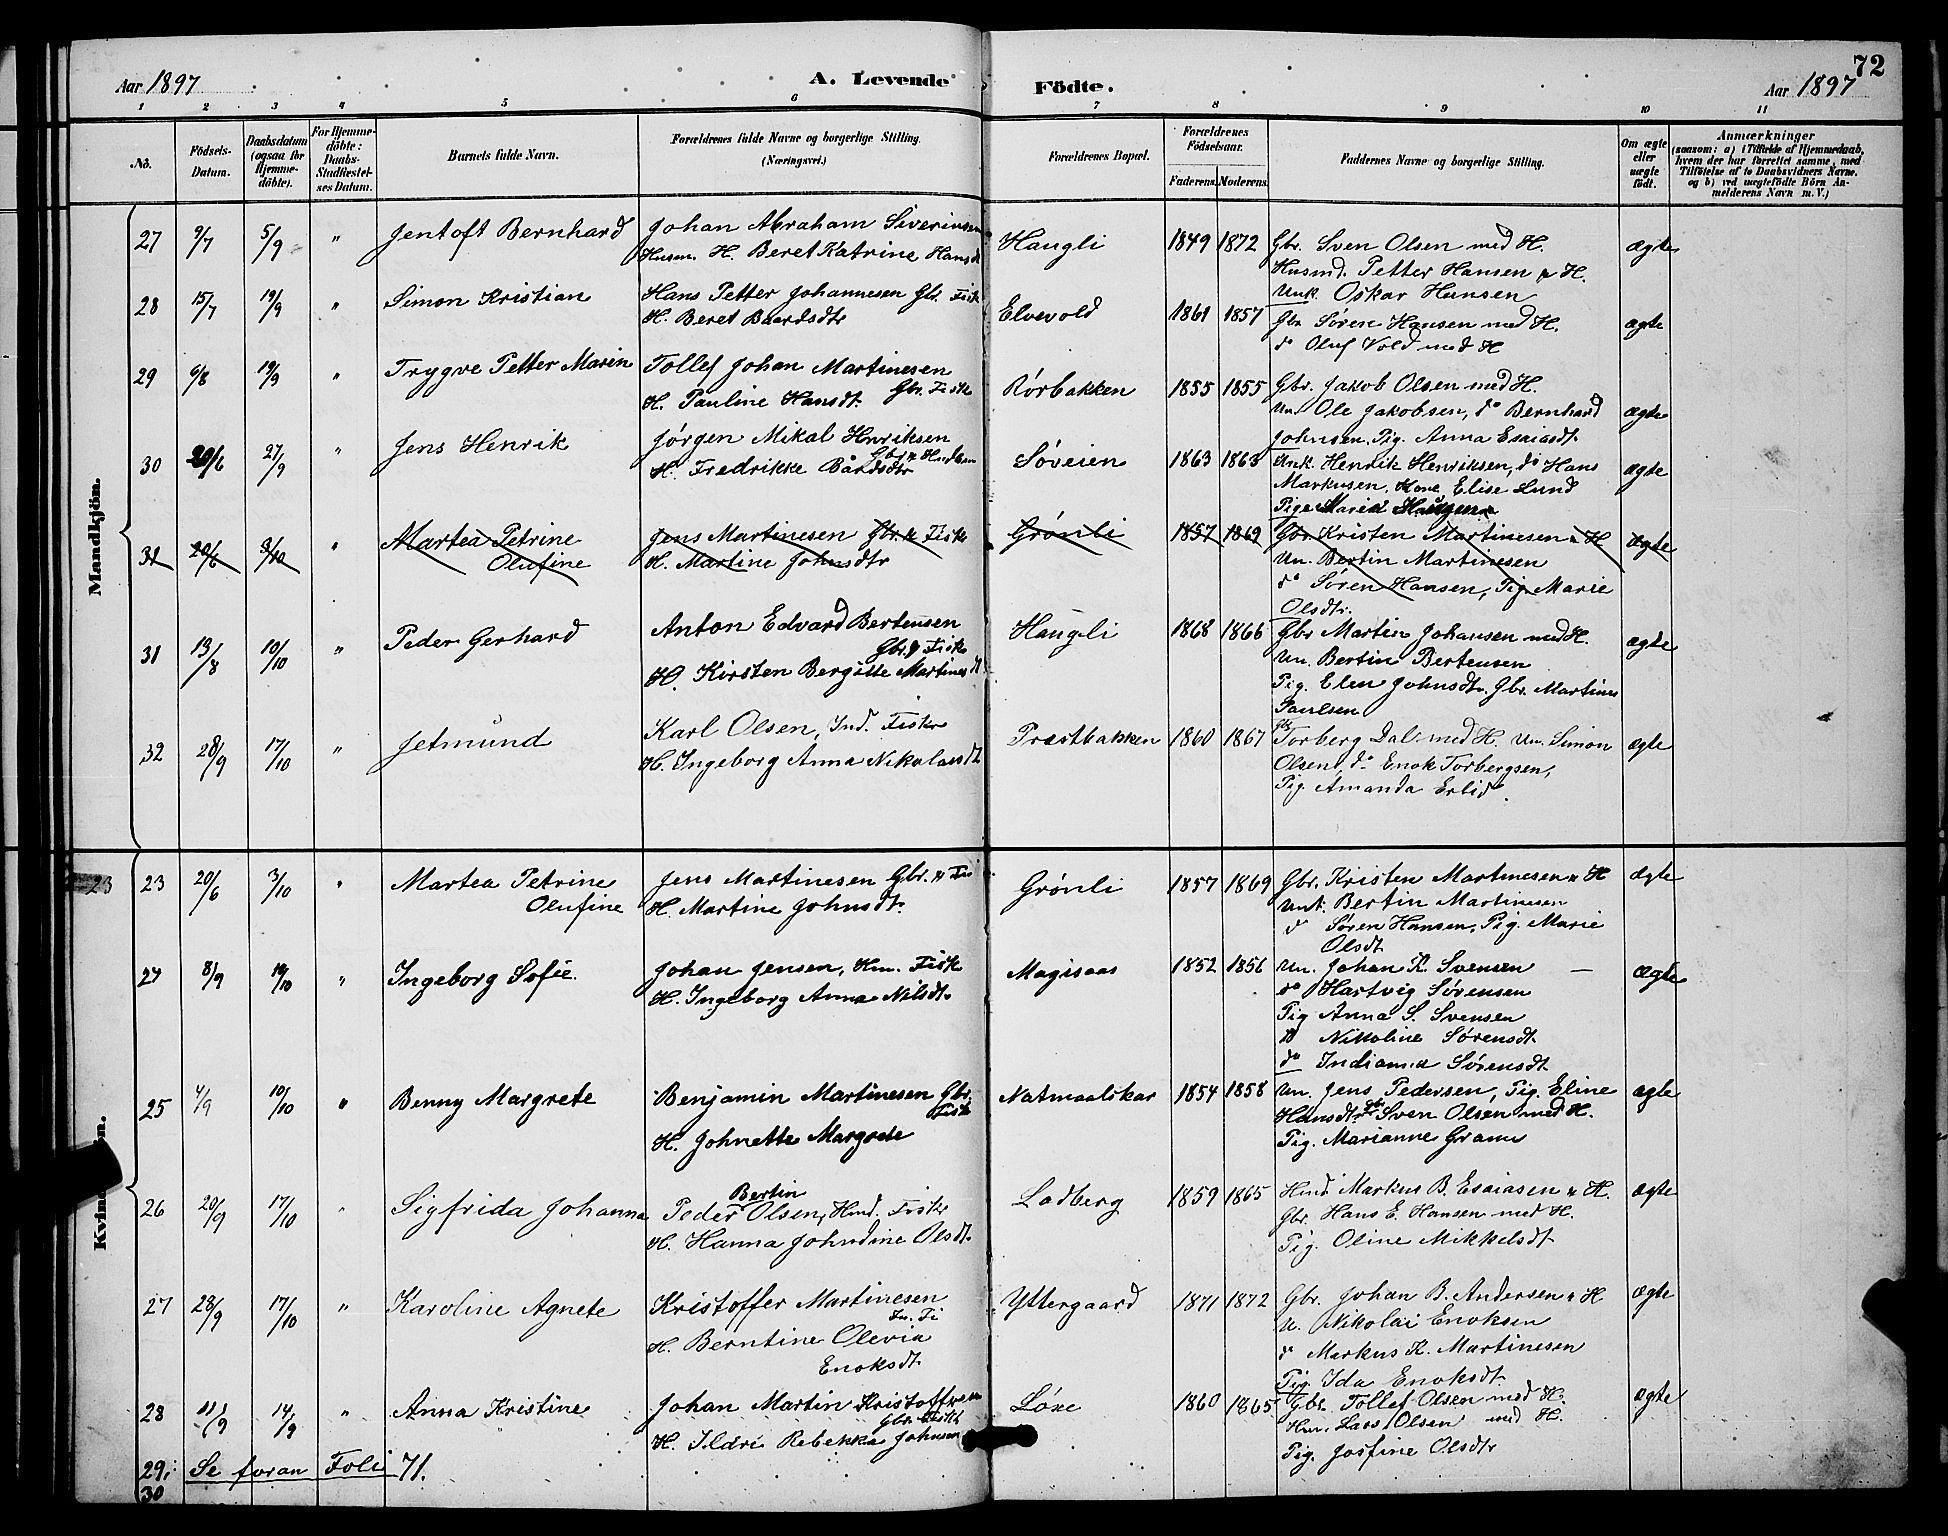 Aar 1897
A. Levende
Födte.
72
Aar 1897
1 2 3 4 5 6 7 8 9 10 11
No.
Födsels-Datum.
Daabsdatum (ogsaa for Hjemme-döbte).
For Hjemme-döbte: Daabs-Stadfæstel-ses Datum.
Barnets fulde Navn.
Forældrenes fulde Navne og borgerlige Stilling. (Næringsvei.)
Forældrenes Bopæl.
Forældrenes Födselsaar.
Faderens. Moderens.
Faddernes Navne og borgerlige Stilling.
Om ægte eller uægte födt.
Anmærkninger
(saasom: a) i Tilfælde af Hjemmedaab, hvem der har forrettet samme, med Tilföielse af to Daabsvidners Navne. og b) ved uægtefödte Börn An-melderens Navn m. V.)
Mandkjön.
27 9/7 5/9 " Jentoft Bernhard Johan Abraham Siverinsen Haugli 1849 1872 Gbr. Sven Olsen med H. ægte
Husm. H. Beret Katrine Hansd Husmd. Petter Hansen & H.
Unk. Oskar Hansen
28 15/7 19/9 " Simon Kristian Hans Petter Johannesen Gbr. Fisk Elvevold 1861 1857 Gbr Søren Hansen med H. ægte
H. Beret Baardsdtr do Oluf Vold med H
29 6/8 19/9 " Trygve Petter Marin Tollef Johan Martinesen Rørbakken 1855 1855 Gbr. Jakob Olsen med H. ægte
Gbr. Fisk
H. Pauline Hansdt. Un. Ole Jakobsen, do Bernhard
Johnsen. Pig. Anna Esaiasdt.
30 20/6 27/9 " Jens Henrik Jørgen Mikal Henriksen Søveien 1863 1863 Unk. Henrik Henriksen, do Hans ægte
H. Fredrikke Bårdsdtr Markusen, Kone Elise Lund
Pige Maria Haugen
31 20/6 3/10 " Martea Petrine Jens Martinesen Gbr. & Fisk Grönli 1857 1869 Gbr Kristen Martinesen & H ægte
Olufine H. Martine Johnsdtr Un. Bertin Martinesen
do Søren Hansen, Pig Marie
Olsdtr.
31 13/8 10/10 " Peder Gerhard Anton Edvard Bertensen Haugli 1868 1866 Gbr Martin Johansen med H. ægte
Gbr. & Fisk Un. Bertin Bertensen
H. Kirsten Bergitte Martinesdt Pig. Elen Johnsdt. Gbr. Martines
Paulsen
32 28/9 17/10 " Jetmund Karl Olsen, Ind. Fiskr Præstbakken 1860 1867 Gbr Torberg Dal med H. Un. Simon ægte
H. Ingeborg Anna Nikolaisdt Olsen, do Enok Torbergsen,
Pig. Amanda
Kvindkjön.
23
23 20/6 3/10 " Martea Petrine Jens Martinesen Gbr. & Fis Grönli 1857 1869 Gbr. Kristen Martinesen & H ægte
Olufine H. Martine Johnsdt. Unk. Bertin Martinesen
d Søren Hansen, Pig. Marie
Olsdt
24 8/9 19/10 " Ingeborg Sofie. Johan Jensen, Hm. Fisk Magisaas 1852 1856 Un. Johan K. Svensen — ægte
H. Ingeborg Anna Nilsdt. do Hartvig Sørensen
Pig Anna S. Svensen
D Nikoline Sørensdt.
do Indiana Sørensdt
25 4/9 10/10 " Benny Margrete Benjamin Martinesen Gbr. Natmaalskar 1854 1858 Un. Jens Pedersen, Pig. Eline ægte
Fisk Hansdtr. Gbr Sven Olsen med H.
H. Johnette Margrete Pig. Marianne Gram
26 20/9 17/10 " Sigfrida Johanna Peder Bertin Olsen, Hmd. Fiskr Ladberg 1859 1865 Hmd. Markus B. Esaiasen & H. ægte
H. Hanna Johndine Olsdt. Gbr. Hans E. Hansen med H.
Pig. Oline Mikkelsdt
27 28/9 17/10 " Karoline Agnete Kristoffer Martinesen Yttergaard 1871 1872 Gbr. Johan B. Andersen & H ægte
In. Fi U. Nikolai Enoksen
H. Berntine Olevia d Markus K. Martinesen
Enoksdt. Pig. Ida Enoksdt.
28 11/9 14/9 " Anna Kristine Johan Martin Kristoffersen Løxe 1860 1865 Gbr. Tollef Olsen med H. ægte
Gbr. Fisk Hm. Lars Olsen med H.
H. Ildri Rebekka Johnsen Pig. Josfine Olsdtr
29. Se foran Folie 71.
30